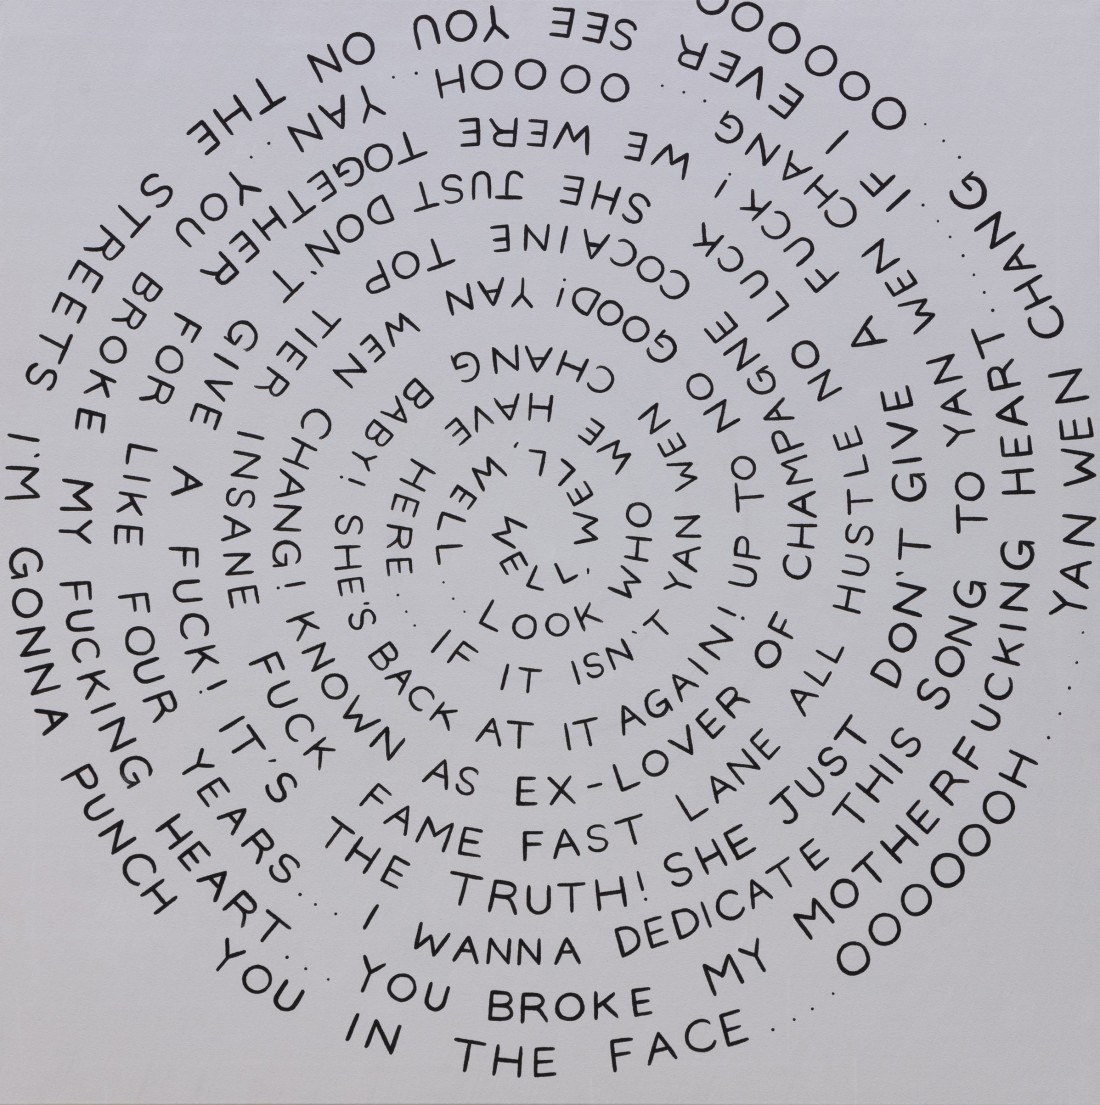 WELL, WELL, WELL... LOOK WHO WE HAVE HERE... IF IT ISN'T YAN WEN CHANG BABY! SHE'S BACK AT IT AGAIN! UP TO NO GOOD! YAN WEN CHANG! KNOWN AS EX-LOVER OF CHAMPAGNE COCAINE TOP TIER INSANE FUCK FAME FAST LANE ALL HUSTLE NO LUCK SHE JUST DON'T GIVE A FUCK! IT'S THE TRUTH! SHE JUST DON'T GIVE A FUCK! WE WERE TOGETHER FOR LIKE FOUR YEARS.... I WANNA DEDICATE THIS SONG TO YAN WEN CHANG.... OOOOH.. YAN.. YOU BROKE MY FUCKING HEART.... YOU BROKE MY MOTHERFUCKING HEART.... IF I EVER SEE YOU ON THE STREETS I'M GONNA PUNCH YOU IN THE FACE.... OOOOOOH.... YAN WEN CHANG... OOOOOO